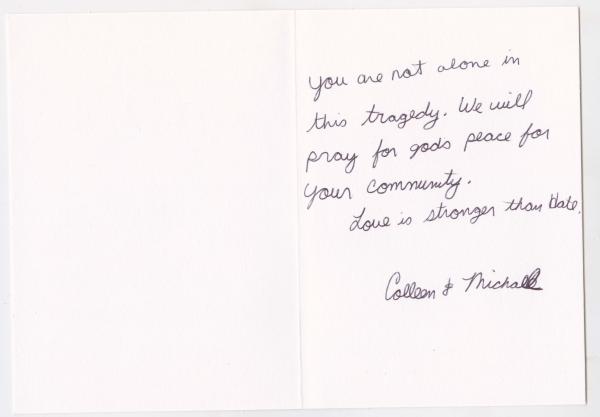 you are not alone in
this tragedy. We will
pray for gods peace for
your community.
Love is stronger than Hate.
Colleen & Michael